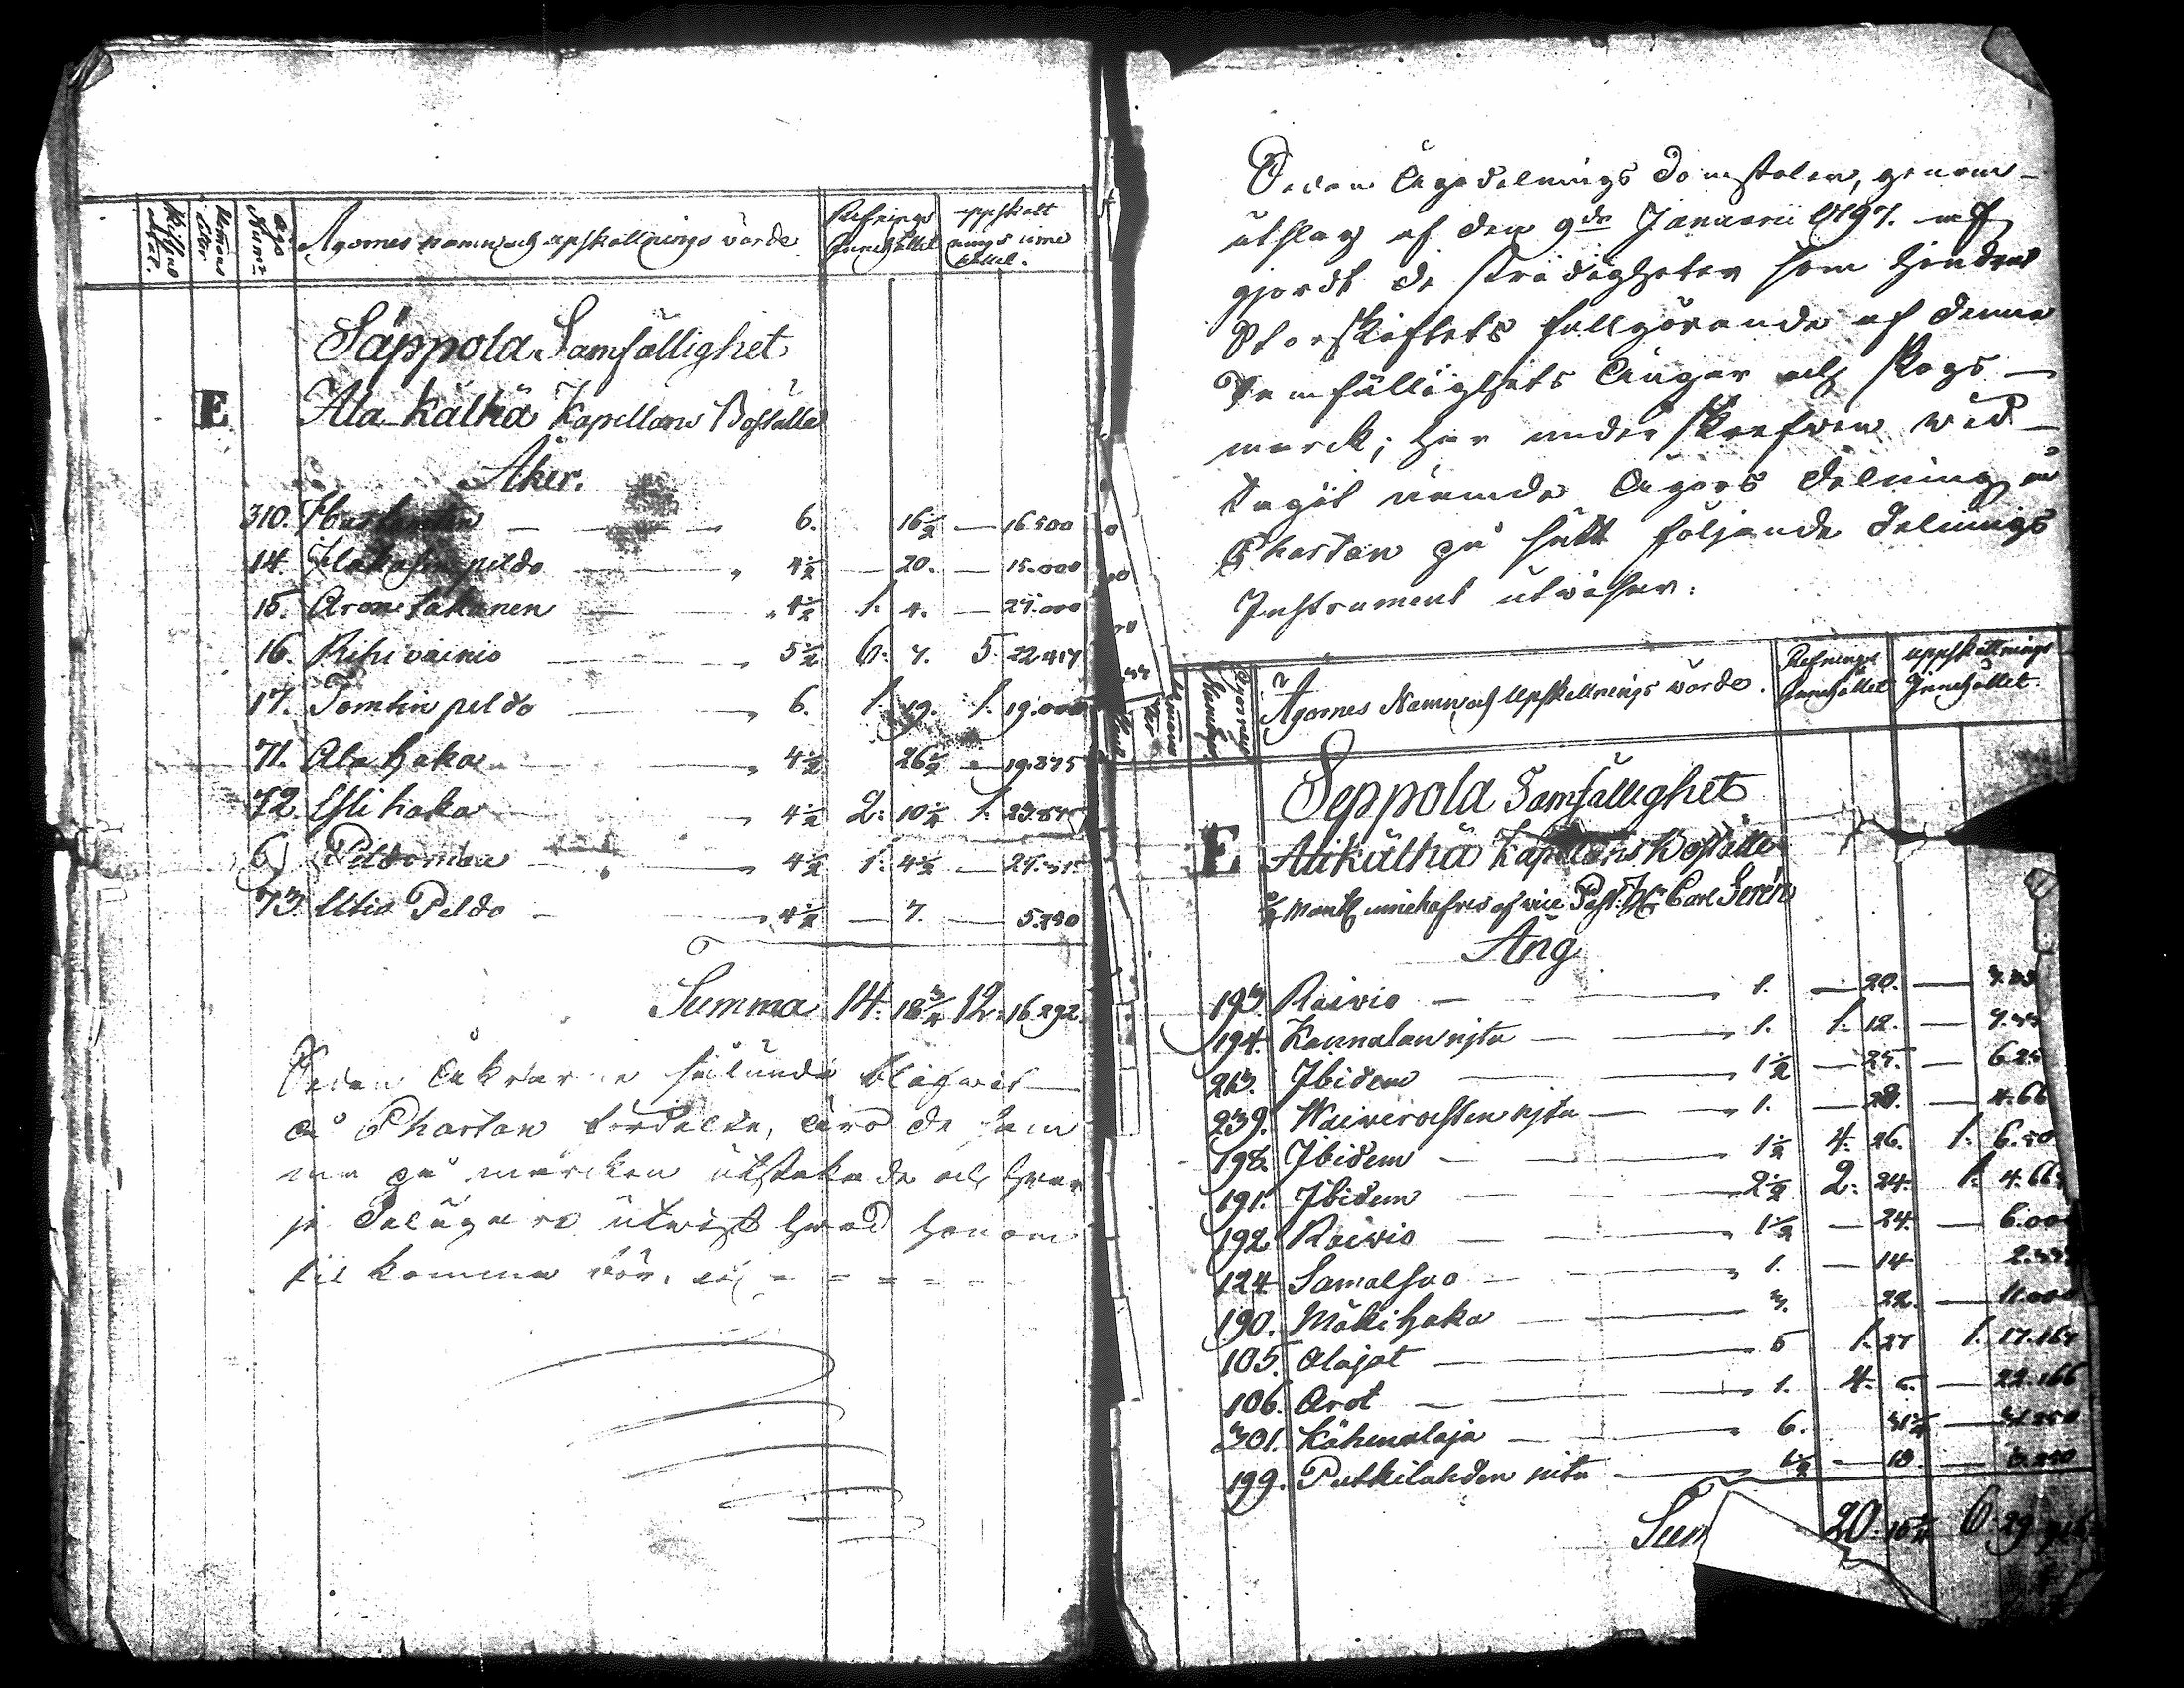 Ägornes namn och upskattnings värde Refnings Innehållet uppskattnings innehållet
Säppola Samfällighet
E Ala Kälkä Kapellans Boställe
Åker.
310. 6. 16½ — 16.500
14. peldo 4½ — 20. — 15.000
15. Aron Sakanen 4½ 1. 4. — 27.000
16. Rihivainio 5½ 6. 7. 5.
17. Tomtin peldo 6. 1. 19. 1. 19.000
71. Ala haka 4½ 26½ — 19.875
72. Ylihaka 4½ 2. 10½ 1. 23.875
4½ 1. 4½ —
73. Utio Peldo 4½ — 7. — 5.250
Summa 14. 18¾ 12. 16.292.
Sedan Åkrarne sålunda blifwit
å Chartan fördelte, äro de sam
ma på marcken utstakade och hwar
je Delägare utwist hwad honom
till komma bör.
Sedan Ägodelnings Domstolen, genom
utslag af den 9de Januarii 1797. af
gjordt de stridigheter som hindrat
Storskiftets fullgörande af denne
Samfällighets Ängar och Skogs
marck; har underskrefwen wid
tagit nämde Ägors delning å
Chartan på sätt följande Delnings
Instrument utwisar:
Ägornes Namn och Upskattnings wärde. Refnings Innehållet uppskattnings Innehållet
Seppola Samfällighet
E Alikälkä Kapellans Boställe
Mantl innehafves af vice Past. Hr Carl Serén
Äng
193. Raivio 1. — 20. —
194. Kannalan nijtu 1. 1. 12. —
Ibidem 1½ — 25. — 6.25
239. nijtu 1. — 28. — 4.66
198. Ibidem 1½ 4. 26. 1. 6.50
191. Ibidem 2½ 2. 24. 1. 4.66
192. Raivio 1½ — 24. — 6.00
124. Samalsuo 1. — 14
190. Mäkihaka 3. 22. — 11.000
105. Alajot 5 1. 27 1. 17.16
106. Arot 1. 4. — 22.166
301. Kähmalaja 6. 31¼ — 31.250
199. Putkilahden nitu 1½ — 13. — 3.250
Sum 20. 15¼ 6. 29.